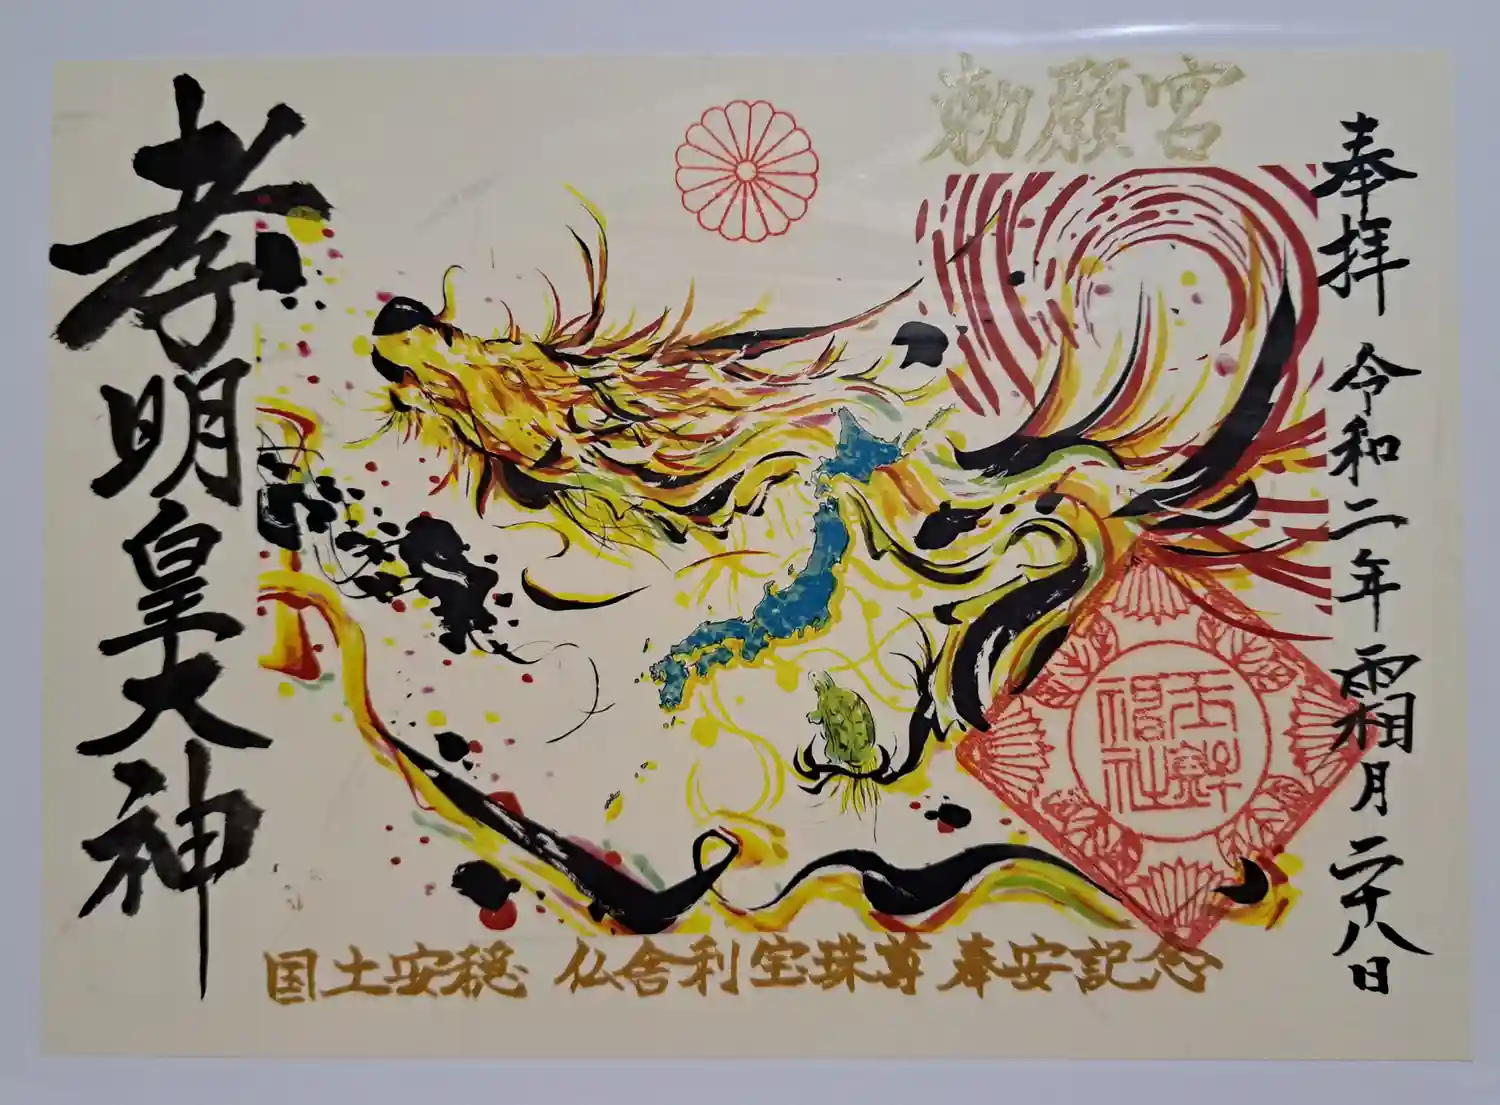 勅願宮
奉拝 令和二年 霜月二十八日
孝明皇大神
国土安穏 仏舎利宝珠尊 奉安記念